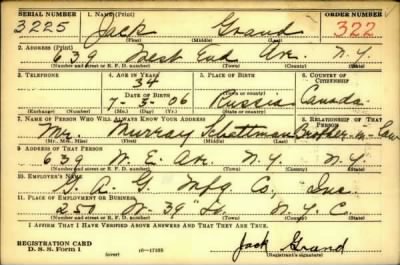 SERIAL NUMBER 1. NAME (Print) ORDER NUMBER
3225 Jack Grand 322
(First) (Middle) (Last)
2. ADDRESS (Print)
639 West End Av. N.Y.
(Number and street or R. F. D. number) (Town) (County) (State)
3. TELEPHONE 4. AGE IN YEARS 5. PLACE OF BIRTH 6. COUNTRY OF CITIZENSHIP
34
DATE OF BIRTH Russia Canada
7-5-06
(Exchange) (Number) (Mo.) (Day) (Yr.) (State or country)
7. NAME OF PERSON WHO WILL ALWAYS KNOW YOUR ADDRESS 8. RELATIONSHIP OF THAT PERSON
Mr. Murray Brother-in-Law
(Mr., Mrs., Miss) (First) (Middle) (Last)
9. ADDRESS OF THAT PERSON
639 W. E. Av. N.Y. N.Y.
(Number and street or R. F. D. number) (Town) (County) (State)
10. EMPLOYER'S NAME
Mfg Co., Inc.
11. PLACE OF EMPLOYMENT OR BUSINESS
250 W. 39" N.Y.C.
(Number and street or R. F. D. number) (Town) (County) (State)
I AFFIRM THAT I HAVE VERIFIED ABOVE ANSWERS AND THAT THEY ARE TRUE.
REGISTRATION CARD
D. S. S. Form 1 (over) 16—17105 Jack Grand
(Registrant's signature)